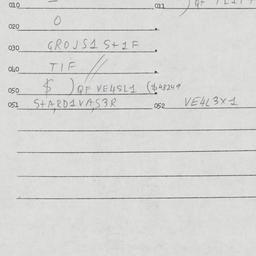 010 011
020 O
030 GROJS1 S+1F
040 TIF
050 $ )QF VE4SL1 ($48249
051 S+ARD1VAS3R 052 VE4L3X1